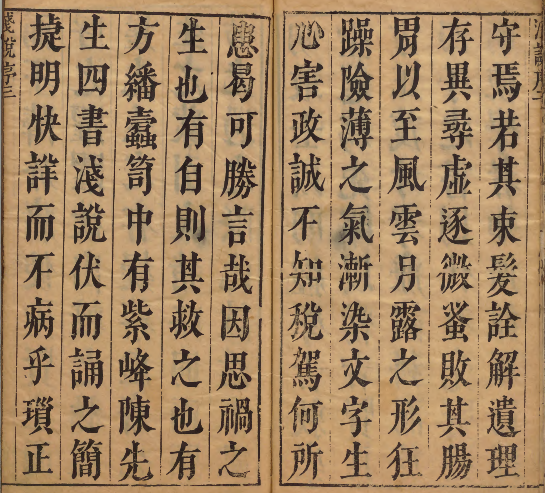 守焉若其束髪詮解遺理
存異尋虛逐微蚤敗其腸
胃以至風雲月露之形狂
躁險薄之氣漸染文字生
心害政誠不知稅駕何所
患曷可勝言哉因思禍之
生也有自則其救之也有
方繙蠹笥中有紫峰陳先
生四書淺說伏而誦之簡
㨗明快詳而不病乎瑣正
淺說序三